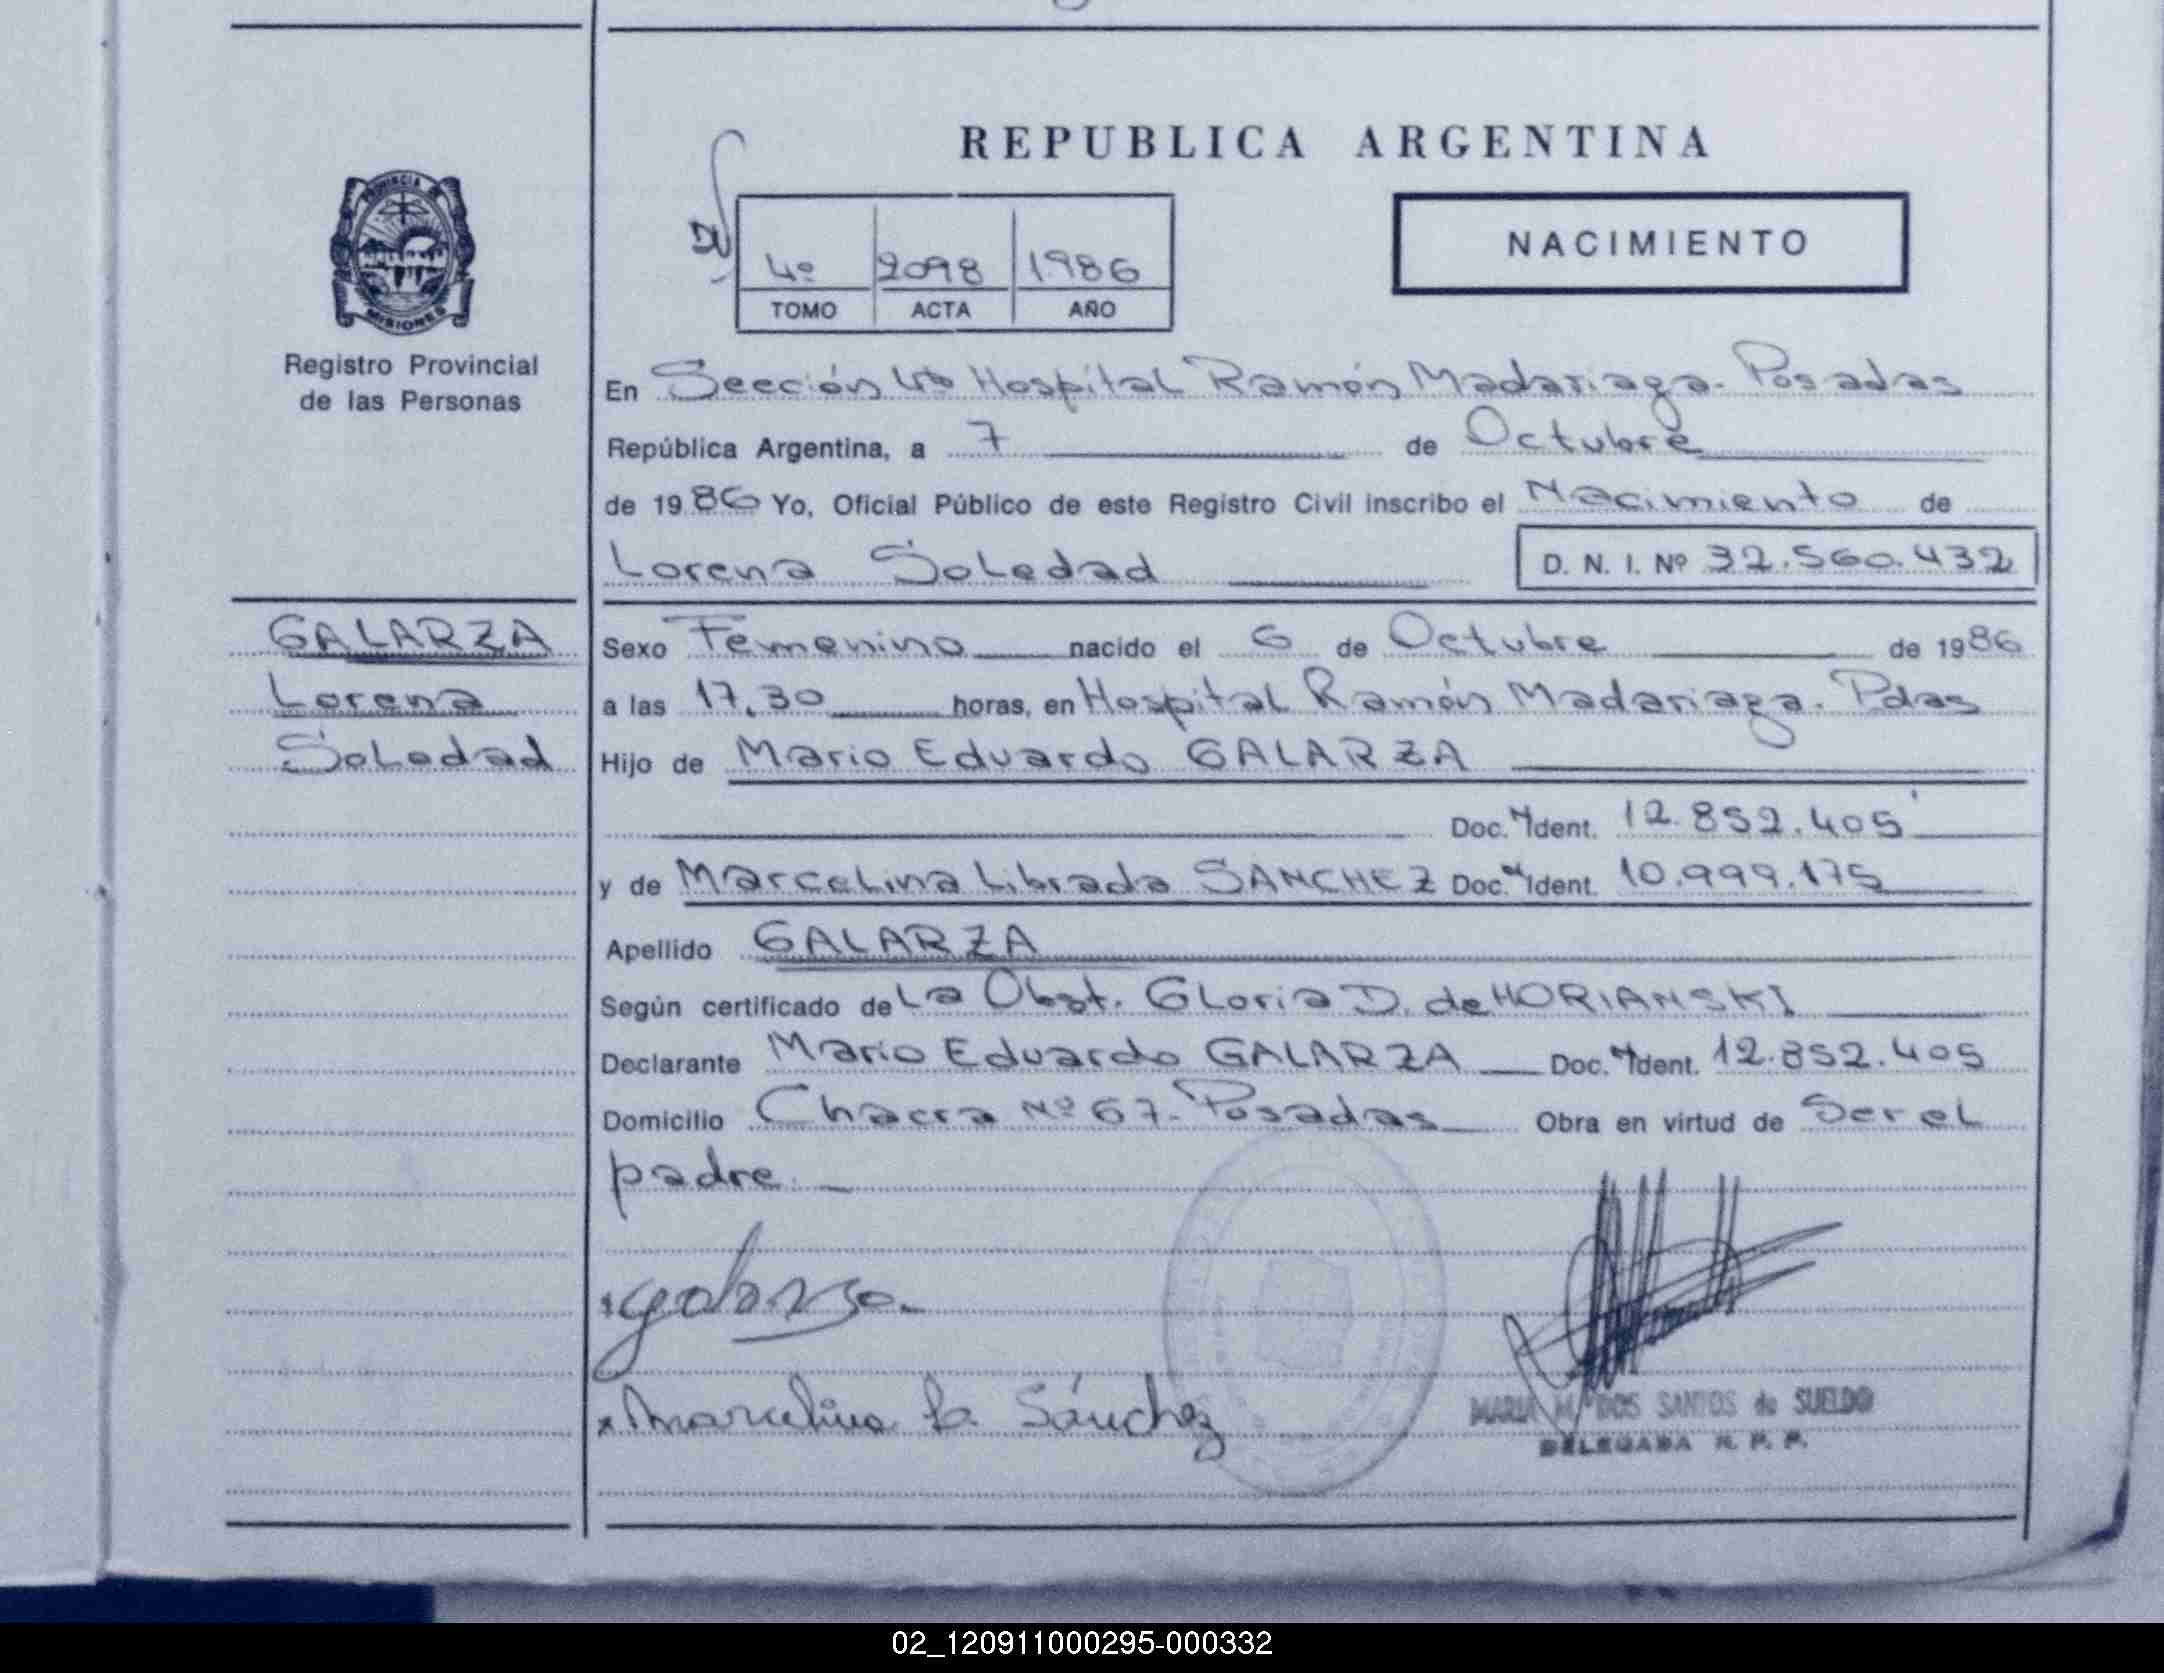 REPUBLICA ARGENTINA
PROVINCIA DE
MISIONES
Registro Provincial
de las Personas
4º 2098 1986
TOMO ACTA AÑO
NACIMIENTO
En Sección 4ta Hospital Ramón Madariaga. Posadas
República Argentina, a 7 de Octubre
de 1986 Yo, Oficial Público de este Registro Civil inscribo el Nacimiento de
Lorena Soledad D. N. I. Nº 32.560.432
GALARZA
Lorena
Soledad
Sexo Femenino nacido el 6 de Octubre de 1986
a las 17,30 horas, en Hospital Ramón Madariaga. Pdas
Hijo de Mario Eduardo GALARZA
Doc. Ident. 12.852.405
y de Marcelina Librada SANCHEZ Doc. Ident. 10.999.175
Apellido GALARZA
Según certificado de La Obst. Gloria D. de HORIANSKI
Declarante Mario Eduardo GALARZA Doc. Ident. 12.852.405
Domicilio Chacra Nº 67. Posadas Obra en virtud de Ser el
padre.
Galarza
Marcelina L. Sánchez
MARIA M. DOS SANTOS de SUELDO
DELEGADA R. P. P.
02_120911000295-000332